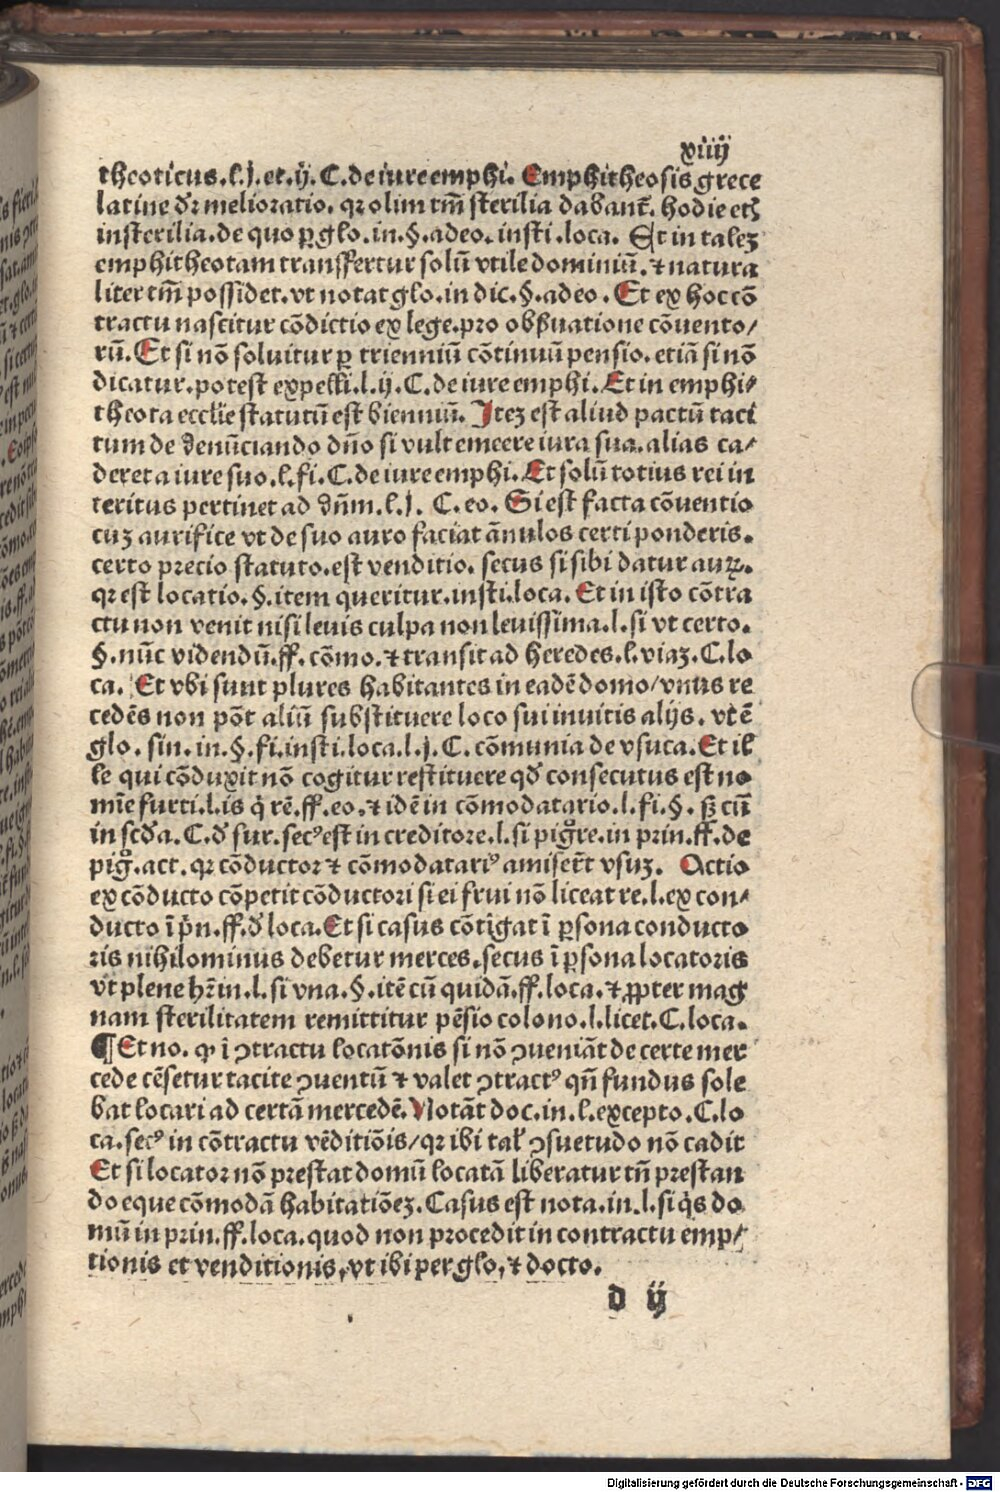 xiiij
theoticus.l.j.et.ij.C.de iure emphi. Emphitheosis grece
latine dr̄ melioratio. qr olim tm̄ sterilia dabant᷑. hodie etꝫ
insterilia.de quo ꝑ glo.in.§.adeo.insti.loca. Et in talez
emphitheotam transffertur solū vtile dominiū.⁊ natura
liter tm̄ possidet.vt notat glo.in dic.§.adeo. Et ex hoc cō
tractu nascitur cōdictio ex lege.pro obẜuatione cōuento/
rū. Et si nō soluitur ꝑ trienniū cōtinuū pensio.etiā si nō
dicatur.potest expelli.l.ij.C.de iure emphi. Et in emphi/
theota eccl̄ie statutū est bienniū. Itez est aliud pactū taci
tum de denūciando dn̄o si vult emeere iura sua.alias ca/
deret a iure suo.l.fi.C.de iure emphi. Et solū totius rei in
teritus pertinet ad dn̄m.l.j. C.eo. Si est facta cōuentio
cuꝫ aurifice vt de suo auro faciat ānulos certi ponderis.
certo precio statuto.est venditio. secus si sibi datur auꝝ.
qr est locatio.§.item queritur.insti.loca. Et in isto cōtra
ctu non venit nisi leuis culpa non leuissima.l.si vt certo.
§.nūc videndū.ff.cōmo.⁊ transit ad heredes.l.viaꝫ.C.lo
ca. Et vbi sunt plures habitantes in eadē domo/vnus re
cedēs non pōt aliū substituere loco sui inuitis alijs.vt ē
glo.sin.in.§.fi.insti.loca.l.j.C.cōmunia de vsuca. Et il
le qui cōduxit nō cogitur restituere qd̓ consecutus est no
mīe furti.l.is q̇ rē.ff.eo.⁊ idē in cōmodatario.l.fi.§.ſꝫ cū
in scd̓a.C.d̓ fur.secꝰ est in creditore.l.si pigr̄re.in prin.ff.de
pig.act.qr cōductor ⁊ cōmodatariꝰ amiser̄t vsuꝫ. Actio
ex cōducto cōpetit cōductori si ei frui nō liceat re.l.ex con/
ducto ī p̄n.ff.d̓ loca. Et si casus cōtigat ī ꝑsona conducto
ris nihilominus debetur merces.secus ī ꝑsona locatoris
vt plene hr̄ in.l.si vna.§.itē cū quidā.ff.loca.⁊ ꝓpter mag
nam sterilitatem remittitur pēsio colono.l.licet.C.loca.
¶ Et no. ꝙ ī ꝯtractu locatōnis si nō ꝯueniāt de certe mer
cede cēsetur tacite ꝯuentū ⁊ valet ꝯtractꝰ qn̄ fundus sole
bat locari ad certā mercedē. Notāt doc.in.l.excepto.C.lo
ca.secꝰ in cōtractu vēditiōis/qr ibi tal̓ ꝯsuetudo nō cadit
Et si locator nō prestat domū locatā liberatur tn̄ prestan
do eque cōmodā habitatiōeꝫ. Casus est nota.in.l.si q̇s do
mū in prin.ff.loca.quod non procedit in contractu emp/
tionis et venditionis,vt ibi per glo,⁊ docto.
d ij
Digitalisierung gefördert durch die Deutsche Forschungsgemeinschaft - DFG